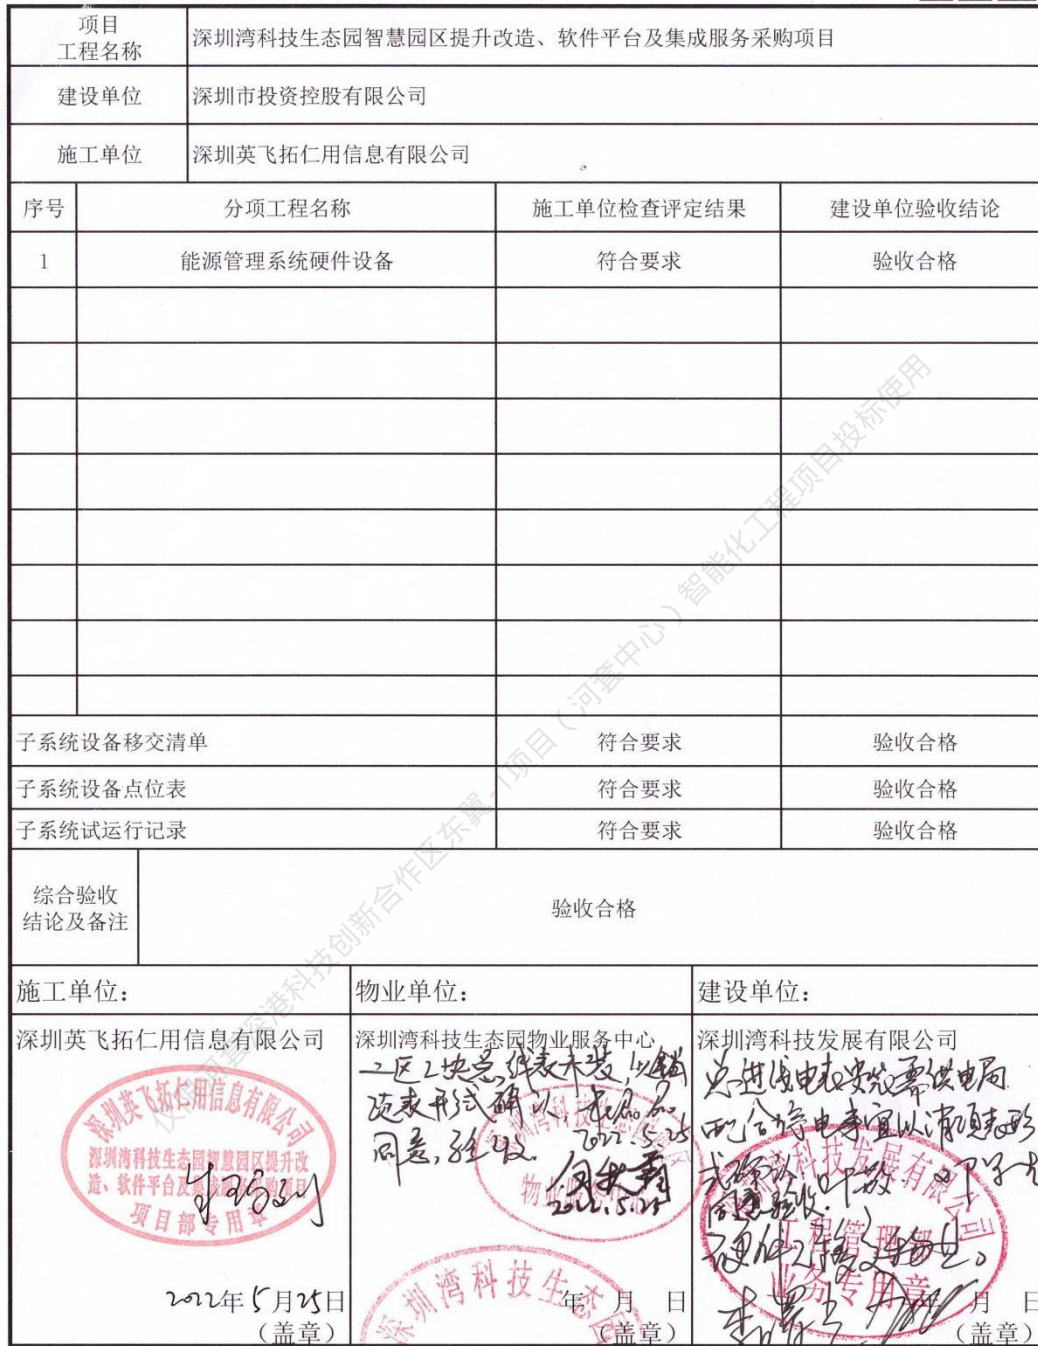 项目
工程名称
深圳湾科技生态园智慧园区提升改造、软件平台及集成服务采购项目
建设单位
深圳市投资控股有限公司
施工单位
深圳英飞拓仁用信息有限公司
序号 分项工程名称 施工单位检查评定结果 建设单位验收结论
1 能源管理系统硬件设备 符合要求 验收合格
子系统设备移交清单 符合要求 验收合格
子系统设备点位表 符合要求 验收合格
子系统试运行记录 符合要求 验收合格
综合验收
结论及备注
验收合格
施工单位：
深圳英飞拓仁用信息有限公司
深圳英飞拓仁用信息有限公司
深圳湾科技生态园智慧园区提升改
造、软件平台及集成服务采购项目
项目部专用章
2022年5月25日
（盖章）
物业单位：
深圳湾科技生态园物业服务中心
二区2块总线表未装,以销
项表形式确认
同意,验收. 2022.5.25
2022.5.25
深圳湾科技生态园
年 月 日
（盖章）
建设单位：
深圳湾科技发展有限公司
总进线电表安装需供电局
配合停电事宜以消项表形
式确认
同意验收.
深圳湾科技发展有限公司
工程管理部
业务专用章
年 月 日
（盖章）
仅限河套深港科技创新合作区东翼-1项目（河套中心）智能化工程项目投标使用